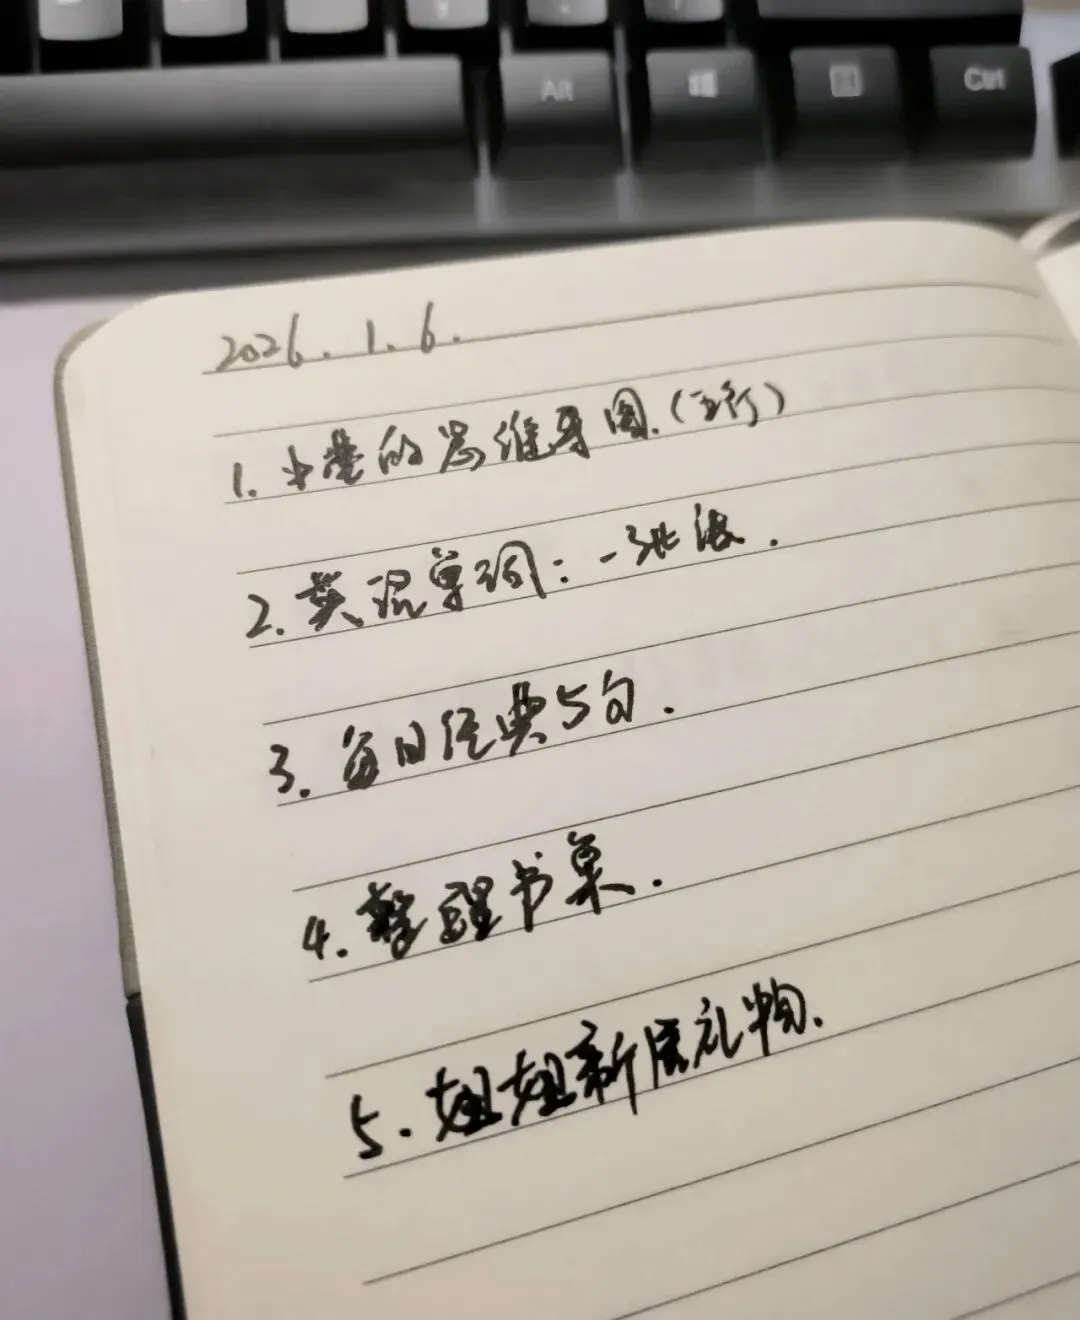 Alt
Ctrl
2026.1.6.
1. 中医的思维导图.(五行)
2. 英语单词:一张纸.
3. 每日经典5句.
4. 整理书桌.
5. 姐姐新居礼物.